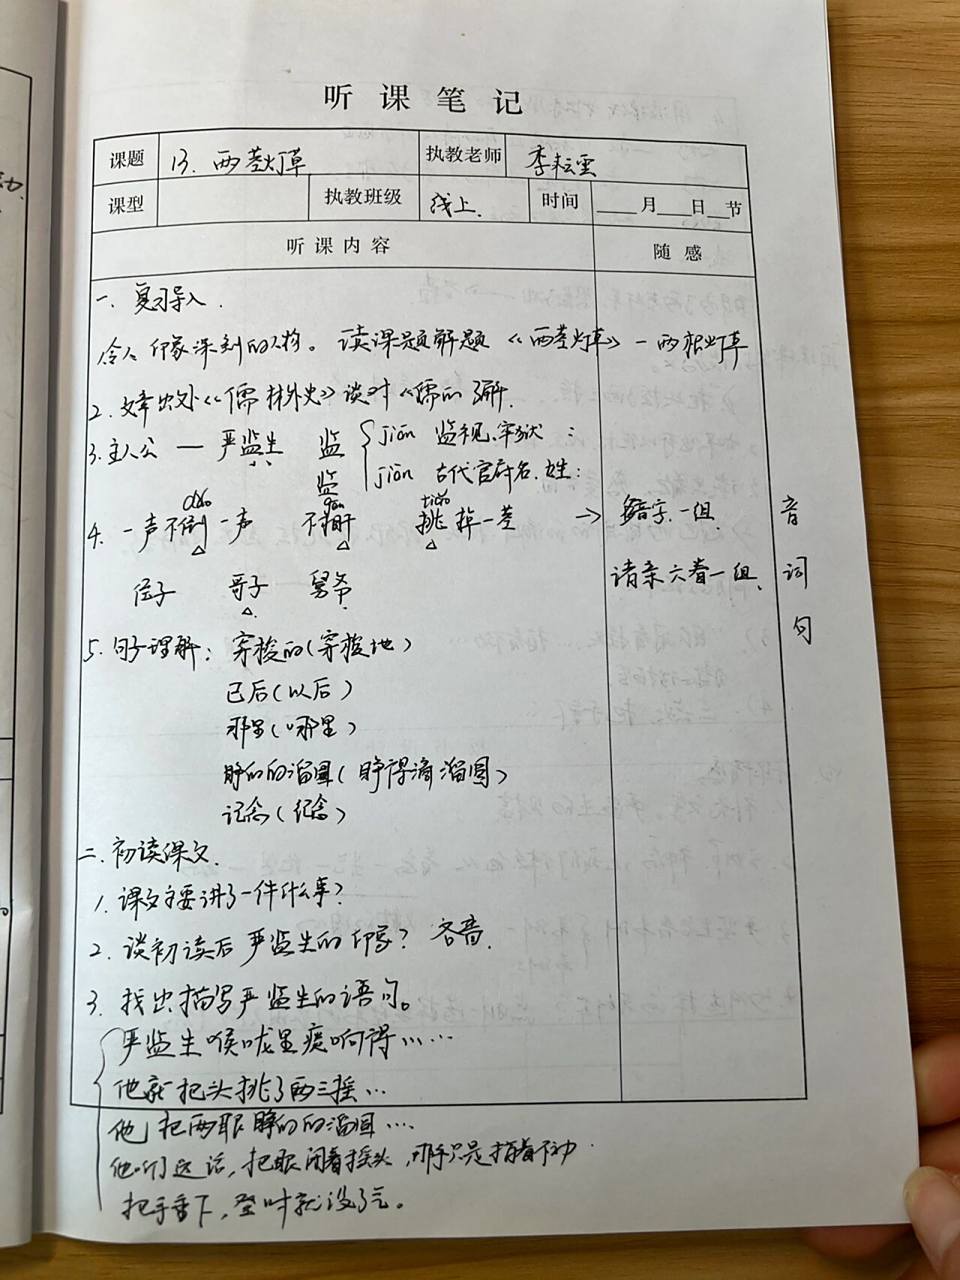 听课笔记
课题 13. 两茎灯草 执教老师 李耘雲
课型 执教班级 线上. 时间 月 日 节
听课内容 随感
一. 复习导入.
令人印象深刻的人物。读课题解题《两茎灯草》—两根灯草
2. 文章出处《儒林外史》谈对《儒的了解.
3. 主人公 — 严监生 监 jiān 监视.牢狱
监 jiàn 古代官府名.姓:
dǎo gān tiǎo
4. 一声不倒一声 不相干 挑掉一茎 → 多音字.一组.
侄子 哥子 舅爷 诸亲六眷一组.
音
词
句
5. 句子理解: 穿梭的(穿梭地)
已后(以后)
那里(哪里)
睁的的溜圆(睁得滴溜圆)
记念(纪念)
二. 初读课文.
1. 课文主要讲了一件什么事?
2. 谈初读后严监生的印象? 吝啬.
3. 找出描写严监生的语句。
严监生喉咙里痰响得……
他就把头摇了两三摇…
他把两眼睁的的溜圆…
他听了这话,把眼闭着摇头,那手只是指着不动.
把手垂下,登时就没了气。